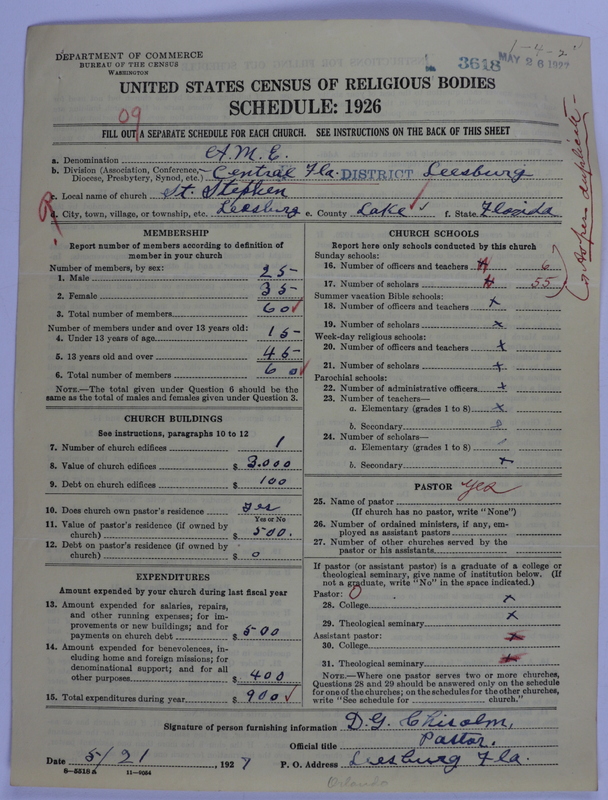 1-4-2
DEPARTMENT OF COMMERCE
BUREAU OF THE CENSUS
WASHINGTON
3618
MAY 26 1927
UNITED STATES CENSUS OF RELIGIOUS BODIES
SCHEDULE: 1926
09
FILL OUT A SEPARATE SCHEDULE FOR EACH CHURCH. SEE INSTRUCTIONS ON THE BACK OF THIS SHEET
a. Denomination A.M.E.
b. Division (Association, Conference, Diocese, Presbytery, Synod, etc.) Central Fla. DISTRICT Leesburg
c. Local name of church St. Stephen
d. City, town, village, or township, etc. Leesburg e. County Lake f. State Florida
As per duplicate
MEMBERSHIP
Report number of members according to definition of
member in your church
Number of members, by sex:
1. Male 25
2. Female 35
3. Total number of members 60
Number of members under and over 13 years old:
4. Under 13 years of age 15
5. 13 years old and over 45
6. Total number of members 60
NOTE.—The total given under Question 6 should be the
same as the total of males and females given under Question 3.
CHURCH BUILDINGS
See instructions, paragraphs 10 to 12
7. Number of church edifices 1
8. Value of church edifices $ 3.000
9. Debt on church edifices $ 100
10. Does church own pastor's residence yes
Yes or No
11. Value of pastor's residence (if owned by
church) $ 500.
12. Debt on pastor's residence (if owned by
church) $ 0
EXPENDITURES
Amount expended by your church during last fiscal year
13. Amount expended for salaries, repairs,
and other running expenses; for im-
provements or new buildings; and for
payments on church debt $ 500
14. Amount expended for benevolences, in-
cluding home and foreign missions; for
denominational support; and for all
other purposes $ 400
15. Total expenditures during year $ 900
CHURCH SCHOOLS
Report here only schools conducted by this church
Sunday schools:
16. Number of officers and teachers 6
17. Number of scholars 55
Summer vacation Bible schools:
18. Number of officers and teachers x
19. Number of scholars x
Week-day religious schools:
20. Number of officers and teachers x
21. Number of scholars x
Parochial schools:
22. Number of administrative officers x
23. Number of teachers—
a. Elementary (grades 1 to 8) x
b. Secondary
24. Number of scholars—
a. Elementary (grades 1 to 8)
b. Secondary x
PASTOR Yes
25. Name of pastor
(If church has no pastor, write "None")
26. Number of ordained ministers, if any, em-
ployed as assistant pastors
27. Number of other churches served by the
pastor or his assistants
If pastor (or assistant pastor) is a graduate of a college or
theological seminary, give name of institution below. (If
not a graduate, write "No" in the space indicated.)
Pastor: O
28. College x
29. Theological seminary x
Assistant pastor:
30. College x
31. Theological seminary x
NOTE.—Where one pastor serves two or more churches,
Questions 28 and 29 should be answered only on the schedule
for one of the churches; on the schedules for the other churches,
write "See schedule for church."
Signature of person furnishing information D.G. Chisolm,
Official title Pastor.
Date 5/21, 1927 P. O. Address Leesburg Fla.
8-5518a 11-9084
Orlando